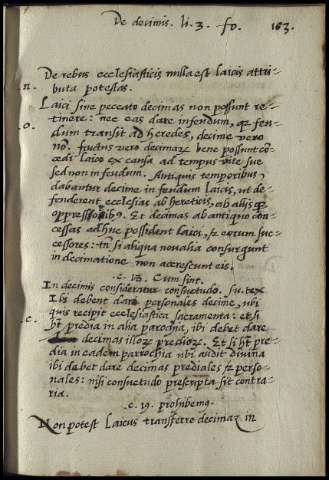 De decimis. li. 3. fo. 163.
De rebus ecclesiasticis nulla est laicis attri-
n. buta potestas.
Laici sine peccato decimas non possunt re-
tinere: nec eas dare in feudum, &
o. dum transit ad heredes, decime vero
no. fructus vero decimaR bene possunt co-
cedi laico ex causa ad tempus vite sue
sed non in feudum. Antiquis temporibus,
dabantur decime in feudum laicis, ut de-
fenderent ecclesias ab hereticis, ab alijs
oppressorib9. Et decimas ab antiquo con-
cessas adhuc possident laici, & eorum suc-
cessores: tn si aliqua novalia consurgunt
in decimatione non accrescunt eis.
c. 18. Cum sint.
In decimis consideratur consuetudo. su. tex
Ibi debent dare personales decime, ubi
quis recipit ecclesiastica sacramenta: et si
c. ht predia in alia parochia, ibi debet dare
decimas illoR predioR. Et si ht pre-
dia in eadem parrochia ubi audit divina
ibi debet dare decimas prediales & perso-
nales: nisi consuetudo prescripta sit contra-
ria.
c. 19. prohibemus.
Non potest Laicus transferre decimas in